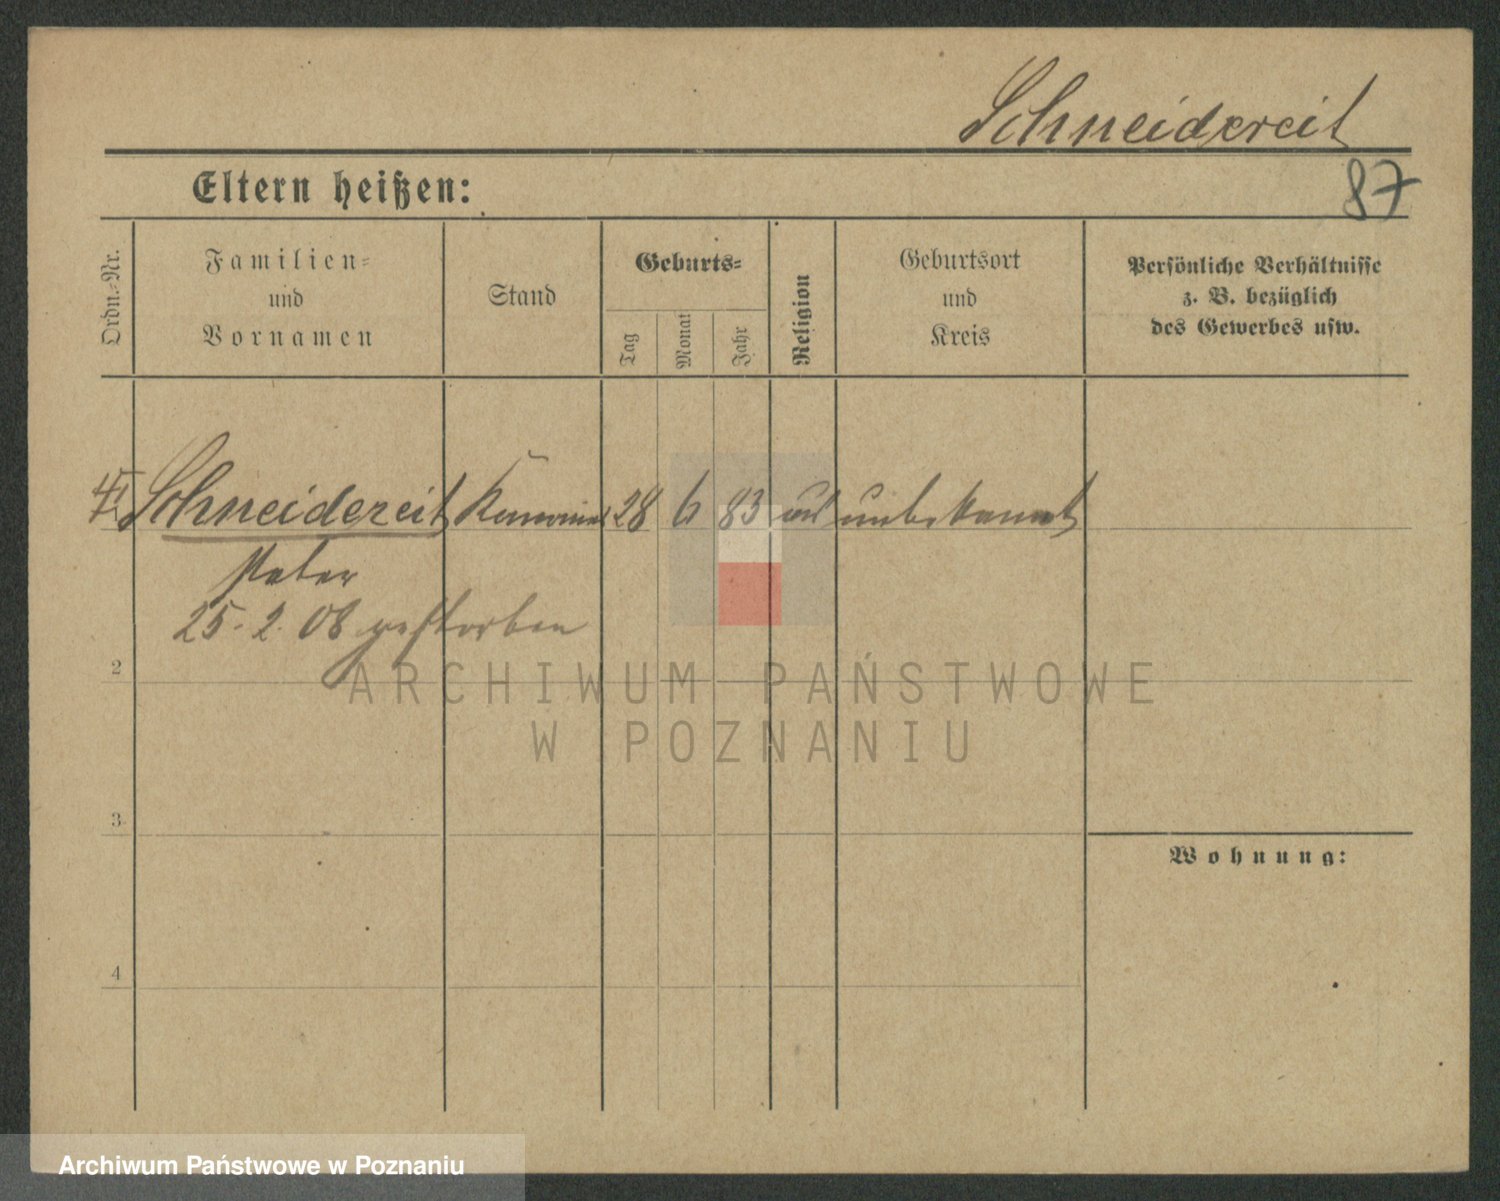 Schneidereit
87
Eltern heißen:
Ordn.-Nr.
Familien-
und
Vornamen
Stand
Geburts-
Tag
Monat
Jahr
Religion
Geburtsort
und
Kreis
Persönliche Verhältnisse
z. B. bezüglich
des Gewerbes usw.
Schneidereit 28 6 83 unbekannt
Peter
25. 2. 08 gestorben
2
3
4
Wohnung:
ARCHIWUM PAŃSTWOWE
W POZNANIU
Archiwum Państwowe w Poznaniu